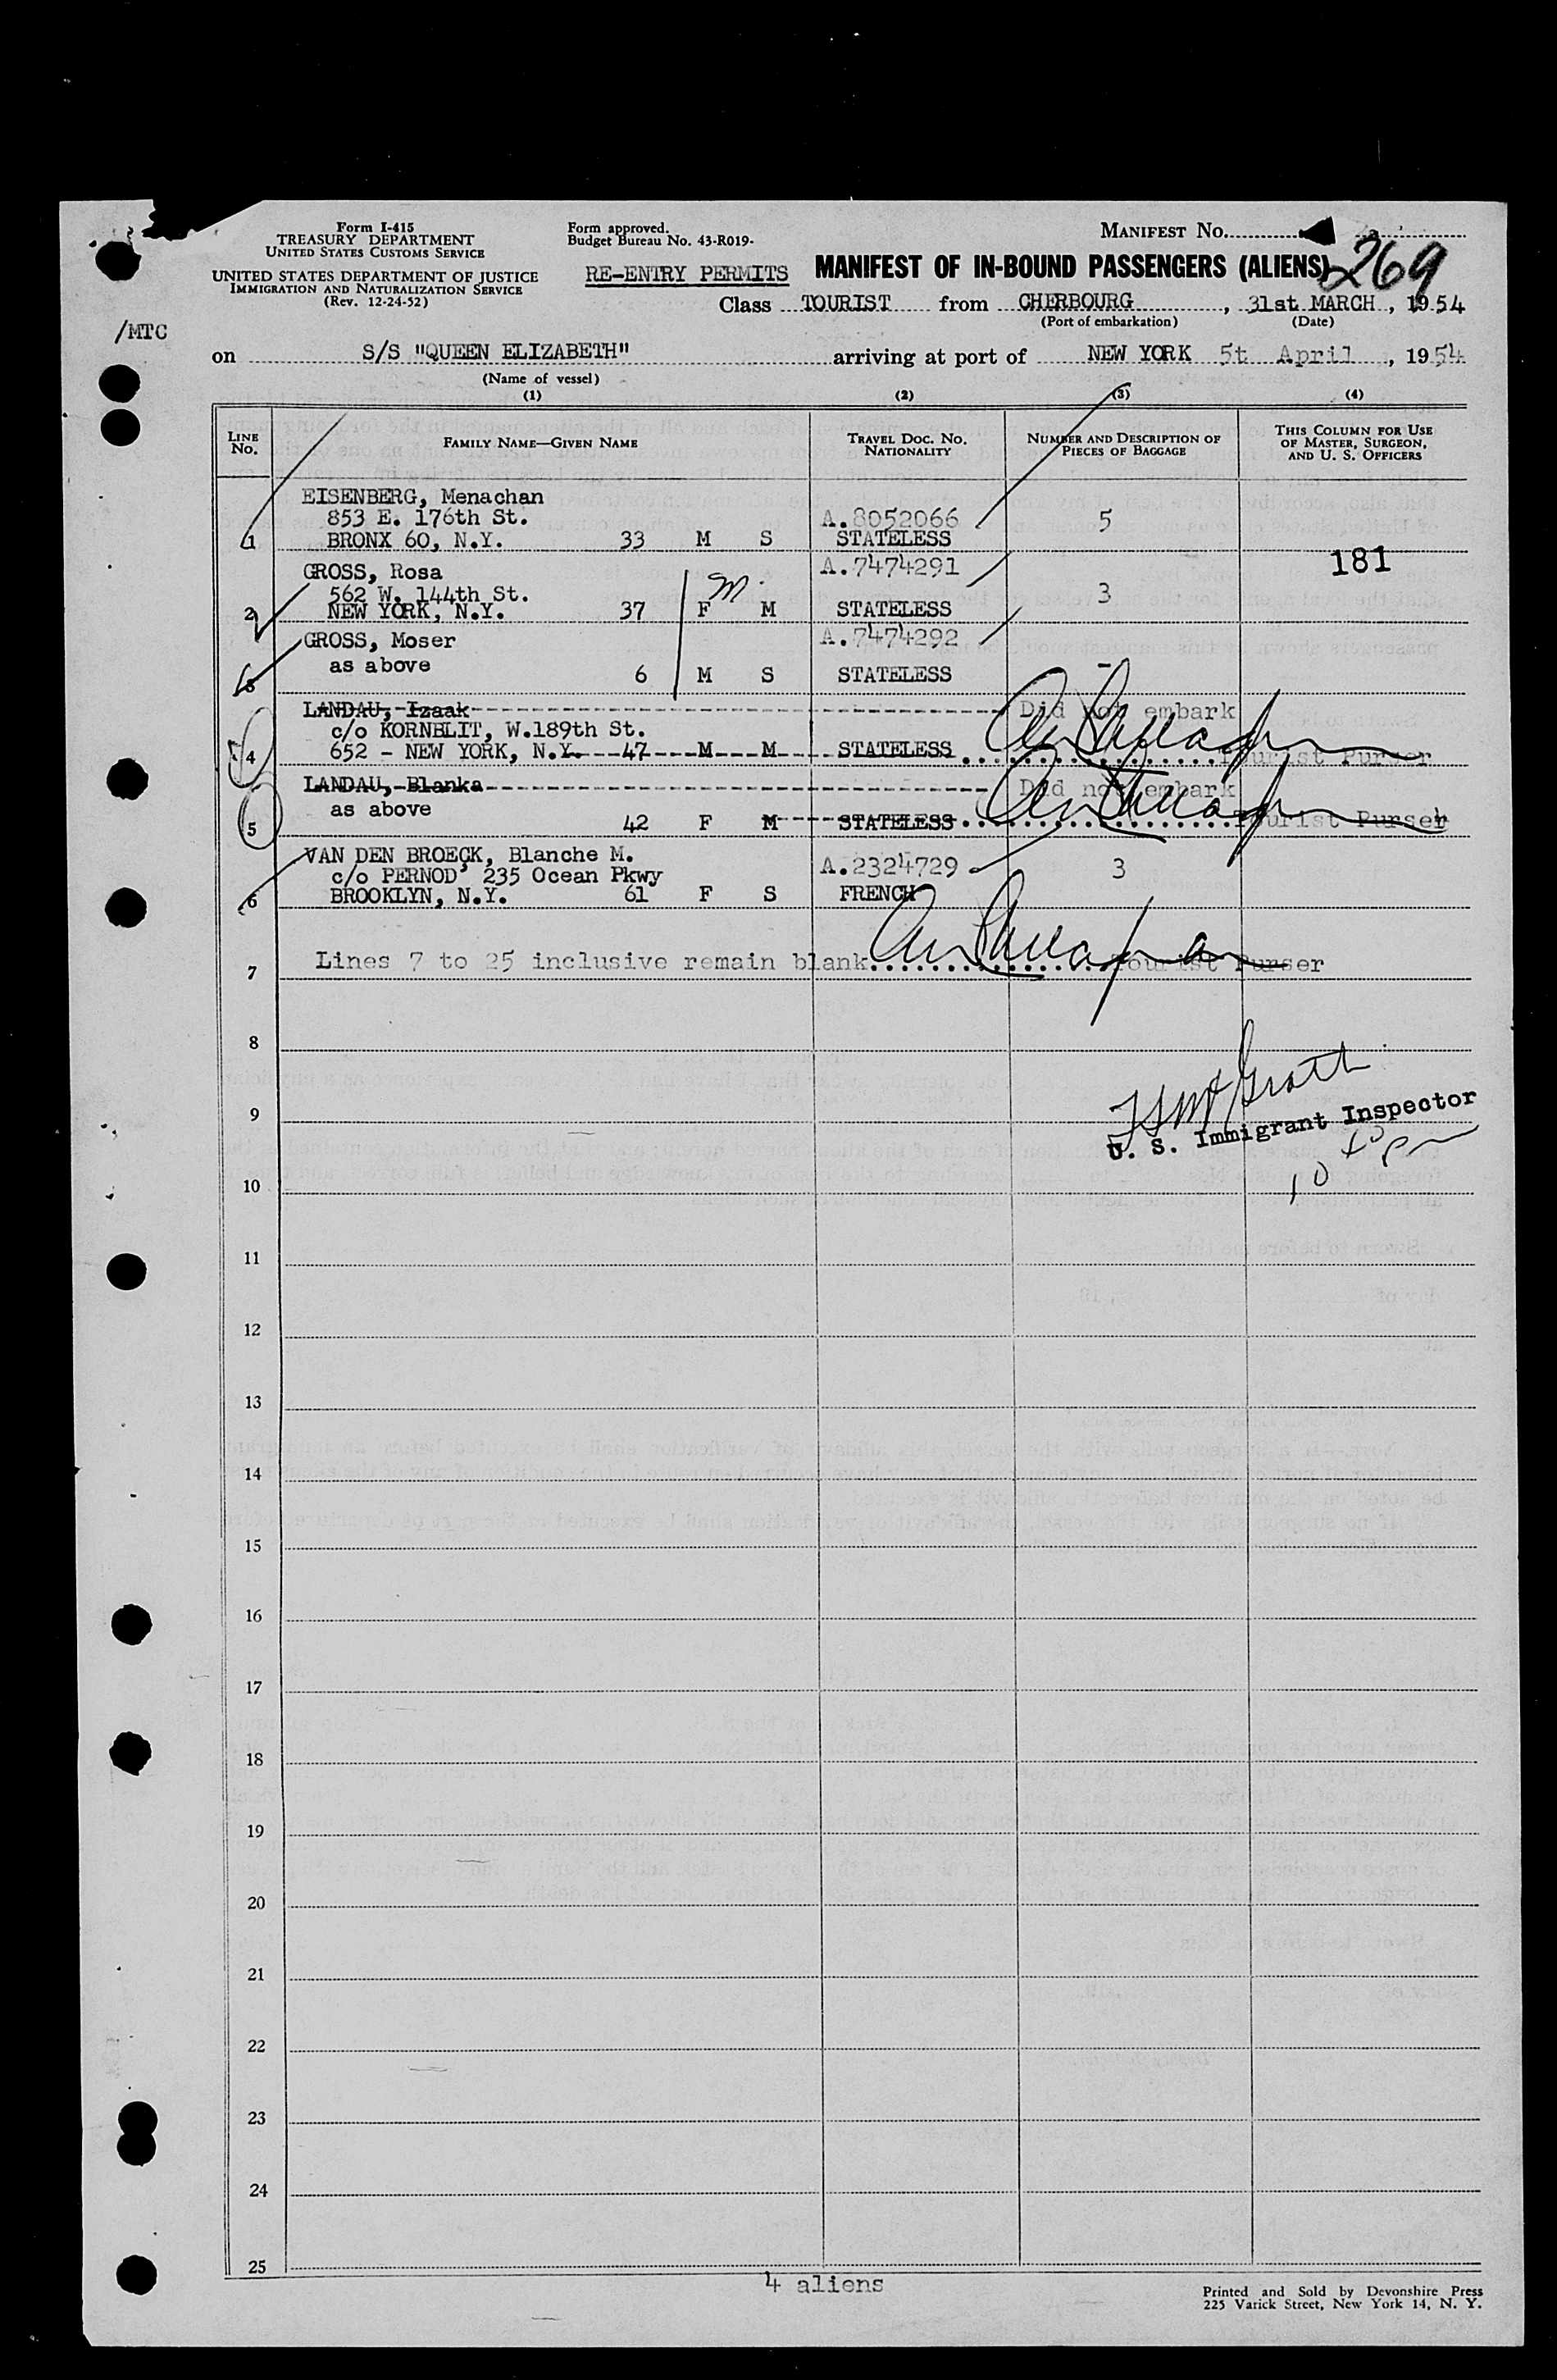 Form I-415
TREASURY DEPARTMENT
UNITED STATES CUSTOMS SERVICE
UNITED STATES DEPARTMENT OF JUSTICE
IMMIGRATION AND NATURALIZATION SERVICE
(Rev. 12-24-52)
Form approved.
Budget Bureau No. 43-R019-
MANIFEST NO.
269
RE-ENTRY PERMITS MANIFEST OF IN-BOUND PASSENGERS (ALIENS)
Class TOURIST from CHERBOURG, 31st MARCH, 1954
(Port of embarkation) (Date)
/MTC
on S/S "QUEEN ELIZABETH" arriving at port of NEW YORK 5t April, 1954
(Name of vessel)
(1) (2) (3) (4)
LINE No. FAMILY NAME—GIVEN NAME TRAVEL DOC. NO. NATIONALITY NUMBER AND DESCRIPTION OF PIECES OF BAGGAGE THIS COLUMN FOR USE OF MASTER, SURGEON, AND U. S. OFFICERS
EISENBERG, Menachan
853 E. 176th St. A.8052066 5
1 BRONX 60, N.Y. 33 M S STATELESS
GROSS, Rosa A.7474291 181
562 W. 144th St. M. 3
2 NEW YORK, N.Y. 37 F M STATELESS
GROSS, Moser A.7474292
3 as above 6 M S STATELESS -
LANDAU, Izaak Did not embark
c/o KORNBLIT, W.189th St.
4 652 - NEW YORK, N.Y. 47 M M STATELESS Tourist Purser
LANDAU, Blanka Did not embark
as above
5 42 F M STATELESS Tourist Purser
VAN DEN BROECK, Blanche M.
c/o PERNOD' 235 Ocean Pkwy A.2324729 3
6 BROOKLYN, N.Y. 61 F S FRENCH
7 Lines 7 to 25 inclusive remain blank Tourist Purser
8
9
U. S. Immigrant Inspector
10 40 pm
10
11
12
13
14
15
16
17
18
19
20
21
22
23
24
25
4 aliens
Printed and Sold by Devonshire Press
225 Varick Street, New York 14, N. Y.